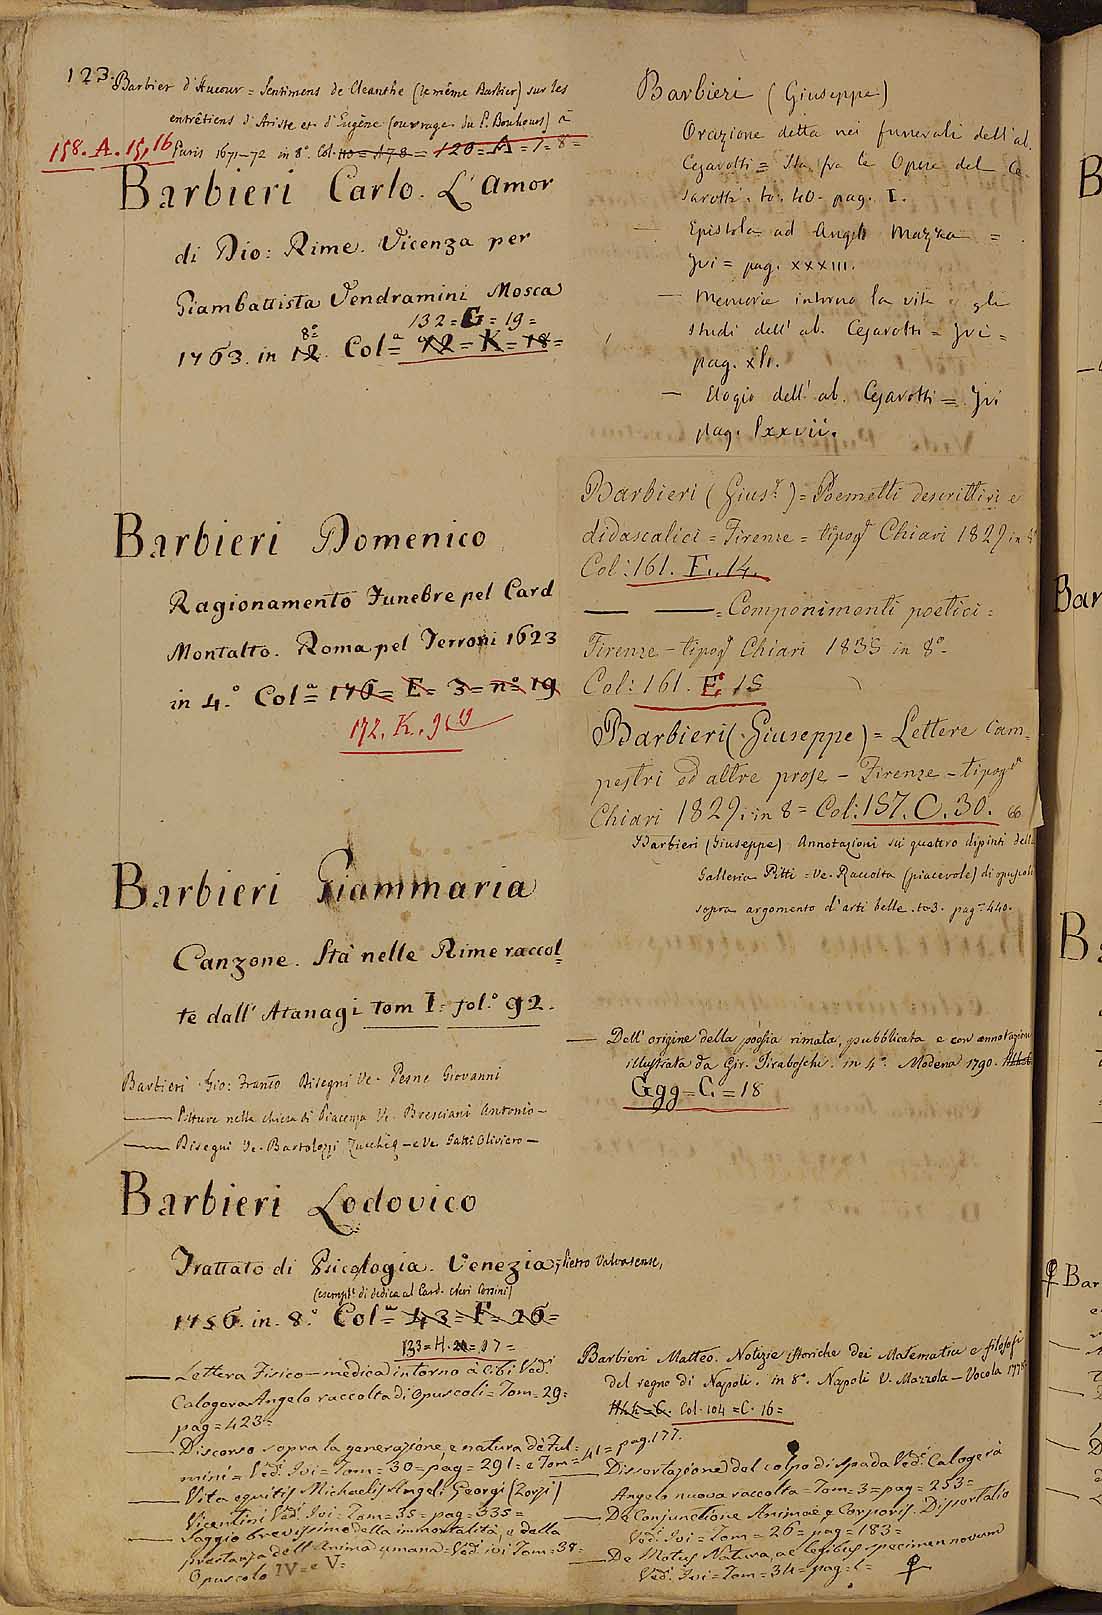 123.
Barbier d'Aucour = Sentimens de Cleanthe (le même Barbier) sur les
entrêtiens d'Ariste et d'Eugène (ouvrage du P. Bouhours) à
158. A. 15, 16 Paris 1671-72 in 8º Col. 120 = A = 7 = 8 =
Barbieri Carlo. L'Amor
di Dio: Rime. Vicenza per
Giambattista Vendramini Mosca
132 = G = 19 =
8º =
1763. in 12. Colª = 72 = K = 18 =
Barbieri Domenico
Ragionamento Funebre pel Card
Montalto. Roma pel Ferroni 1623
in 4.º Colª = 176 = E = 3 = nº 19
172. K. 9
Barbieri Giammaria
Canzone. Sta nelle Rime raccol=
te dall'Atanagi tom I. fol.º 92.
Barbieri Gio: Franco Disegni Ve. Pesne Giovanni
—— Pitture nella chiesa di Piacenza Ve. Bresciani Antonio —
—— Disegni Ve. Bartolozzi — e Ve. Gatti Oliviero —
Barbieri Lodovico
Trattato di Psicologia. Venezia, Pietro Valvasense,
(esempl.º di dedica al Card. Neri Corsini)
1756. in. 8.º Colª = 43 = F = 26 =
133 = H. = 17 =
—— Lettera Fisico-medica intorno à Cibi Ved.i
Calogerà Angelo raccolta di Opuscoli = Tom = 29 =
pag = 423 =
—— Discorso sopra la generazione e natura de Ful=
mini = Ved.i Ivi = Tom = 30 = pag = 291 = e Tom = 41 = pag. 177.
—— Vita equitis Michaelis Angeli Georgi (Zorzi)
Vicentini Ved.i Ivi = Tom = 35 = pag = 335 =
—— Saggio brevissimo della immortalità, e della
prestanza dell'Anima umana = Ved.i ivi Tom = 38 =
Opuscolo IV = e V =
Barbieri (Giuseppe)
Orazione detta nei funerali dell'ab.
Cesarotti = Sta fra le Opere del Ce=
sarotti. to. 40. pag. I.
— Epistola ad Angelo Mazza =
Ivi = pag. xxxIII.
— Memorie intorno la vita e gli
studi dell'ab. Cesarotti = Ivi =
pag. xli.
— Elogio dell'ab. Cesarotti = Ivi
pag. lxxvii.
Barbieri (Gius.e) = Poemetti descrittivi e
didascalici = Firenze = tipogª Chiari 1829 in 8º
Col: 161. E. 14.
—— —— = Componimenti poetici =
Firenze - tipogª Chiari 1835 in 8º -
Col: 161. E. 15
Barbieri (Giuseppe) = Lettere Cam=
pestri ed altre prose - Firenze - tipogª
Chiari 1829. in 8 = Col: 157. C. 30.
Barbieri (Giuseppe) Annotazioni sui quattro dipinti della
Galleria Pitti = Ve. Raccolta (piacevole) di opuscoli
sopra argomento d'arti belle. to 3. pag = 440.
— Dell'origine della poesia rimata, pubblicata e con annotazioni
illustrata da Gir. Tiraboschi. in 4º. Modena 1790.
Ggg = C. = 18
Barbieri Matteo. Notizie istoriche dei Matematici e filosofi
del regno di Napoli. in 8º. Napoli V. Mazzola - Vocola 1778
Hhh = C. Col. 104 = C. 16 =
—— Dissertazione del colpo di spada Ved.i Calogerà
Angelo nuova raccolta = Tom = 3 = pag = 253 =
—— De Conjunctione Animae, & Corporis Dissertatio
Ved.i Ivi = Tom = 26 = pag = 183 =
—— De Motus Natura, ac legibus specimen novum
Ved.i Ivi = Tom = 34 = pag = 1 =